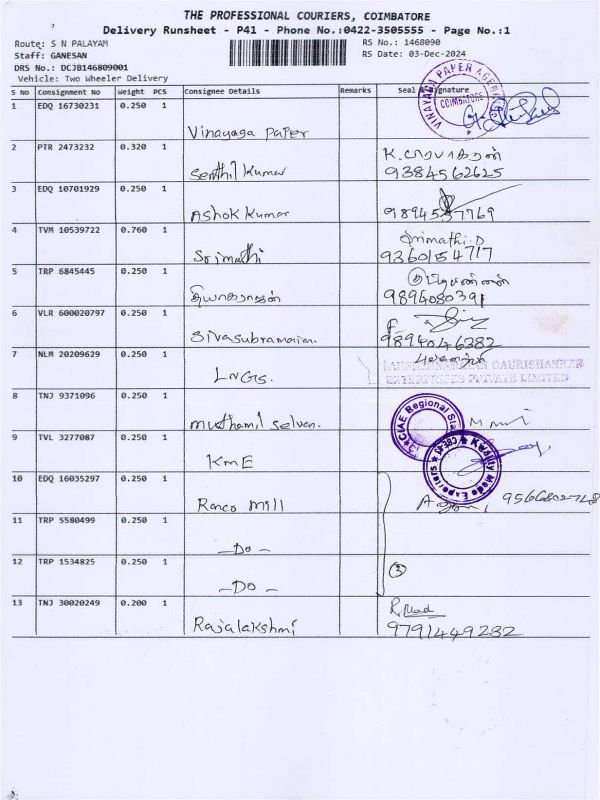 THE PROFESSIONAL COURIERS, COIMBATORE
Delivery Runsheet - P41 - Phone No.:0422-3505555 - Page No.:1
Route: S N PALAYAM
RS No.: 1468090
Staff: GANESAN
RS Date: 03-Dec-2024
DRS No.: DCJB146809001
Vehicle: Two Wheeler Delivery
S No Consignment No Weight PCS Consignee Details Remarks Seal & Signature
VINAYAGA PAPER AGENCY COIMBATORE
1 EDQ 16730231 0.250 1
Vinayaga Paper
2 PTR 2473232 0.320 1
Senthil Kumar 9384562625
3 EDQ 10701929 0.250 1
Ashok Kumar 9894557769
4 TVM 10539722 0.760 1
Srimathi.D
Srimathi 9360154717
5 TRP 6845445 0.250 1
தியாகராஜன் 9894080391
6 VLR 600020797 0.250 1
Sivasubramanian. 9894046382
7 NLM 20209629 0.250 1
GAURISHANKER
LNGS. ENTERPRISES PRIVATE LIMITED
8 TNJ 9371096 0.250 1
Muthamil Selvan.
CIAE Regional
9 TVL 3277087 0.250 1
KME
10 EDQ 16035297 0.250 1
Ranco Mill 9566802768
11 TRP 5580499 0.250 1
-Do-
12 TRP 1534825 0.250 1
3
-Do-
13 TNJ 30020249 0.200 1
Rajalakshmi 9791449232